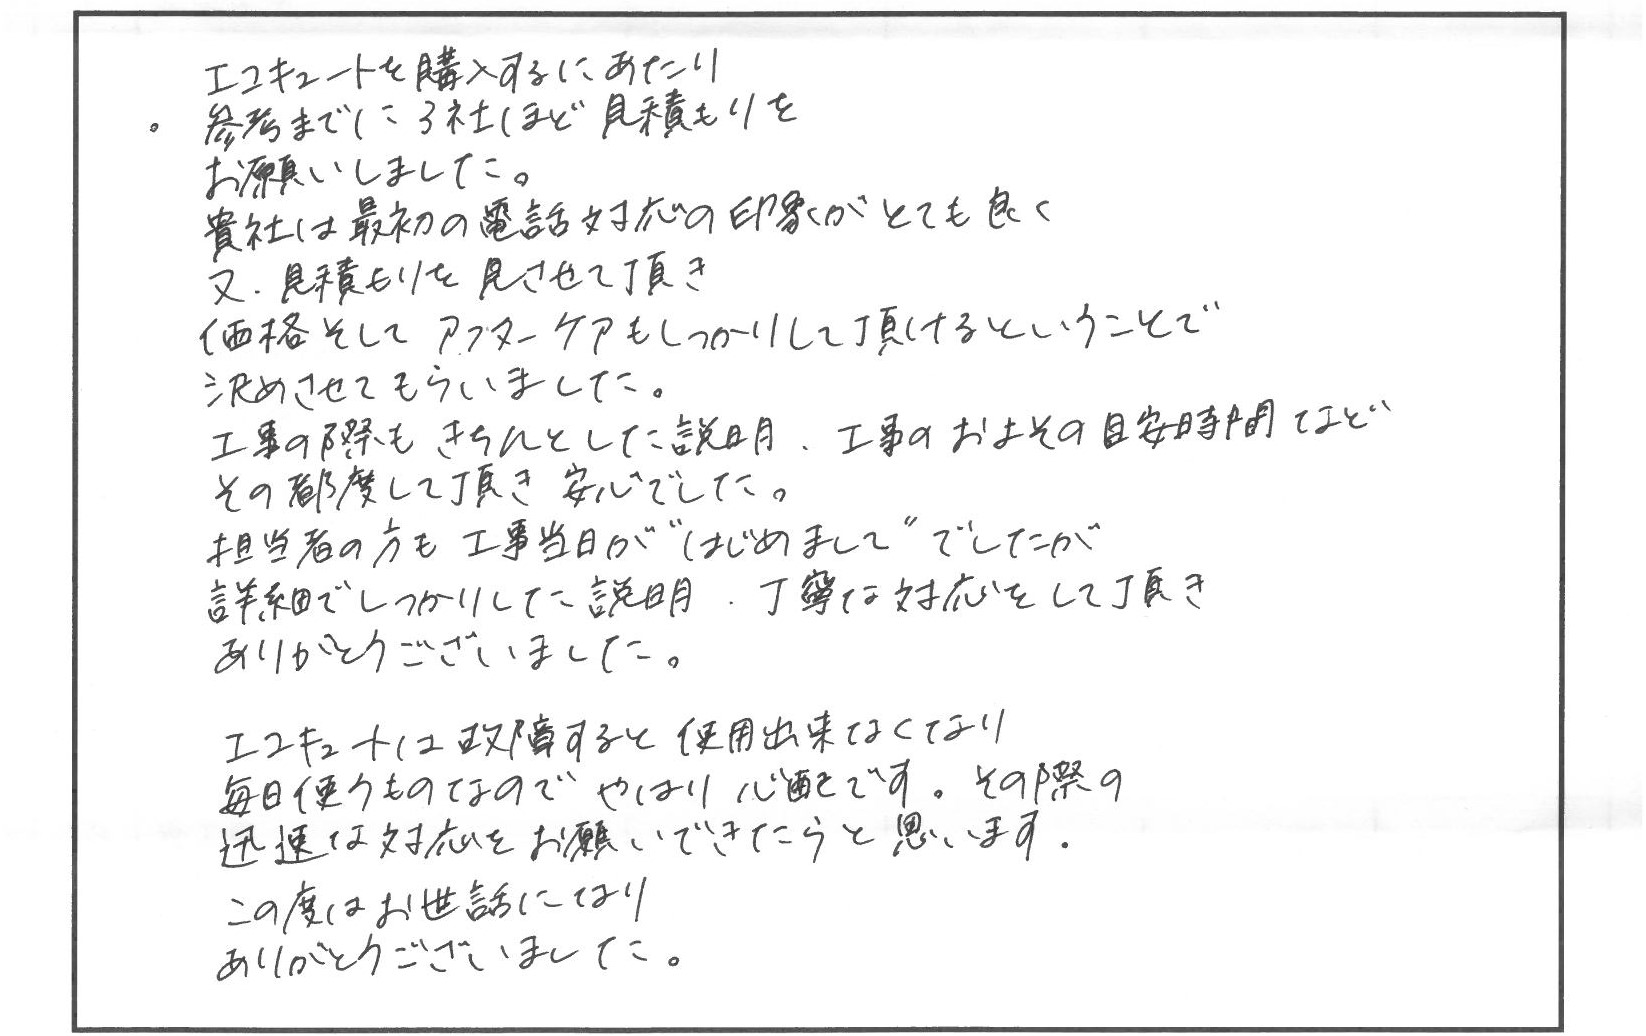 エコキュートを購入するにあたり
。参考までに3社ほど見積もりを
お願いしました。
貴社は最初の電話対応の印象がとても良く
又、見積もりを見させて頂き
価格そしてアフターケアもしっかりして頂けるということで
決めさせてもらいました。
工事の際もきちんとした説明、工事のおよその目安時間など
その都度して頂き安心でした。
担当者の方も工事当日が“はじめまして”でしたが
詳細でしっかりした説明、丁寧な対応をして頂き
ありがとうございました。
エコキュートは故障すると使用出来なくなり
毎日使うものなのでやはり心配です。その際の
迅速な対応をお願いできたらと思います。
この度はお世話になり
ありがとうございました。